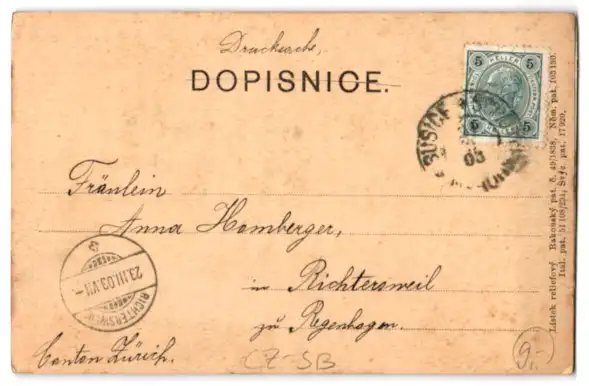 Drucksache,
DOPISNICE.
5 HELLER 5
5 5
SUŠICE
03
Fräulein
Anna Homberger,
in Richtersweil
zu Regenhagen.
Canton Zürich.
23.III.03.VII-
RICHTERSWEIL
CZ-SB
9,-
Lístek reliefový Rakouský pat. č. 49/1838, Něm. pat. 105 130.
Ital. pat. 51 108/234, Švýc. pat. 17 920.